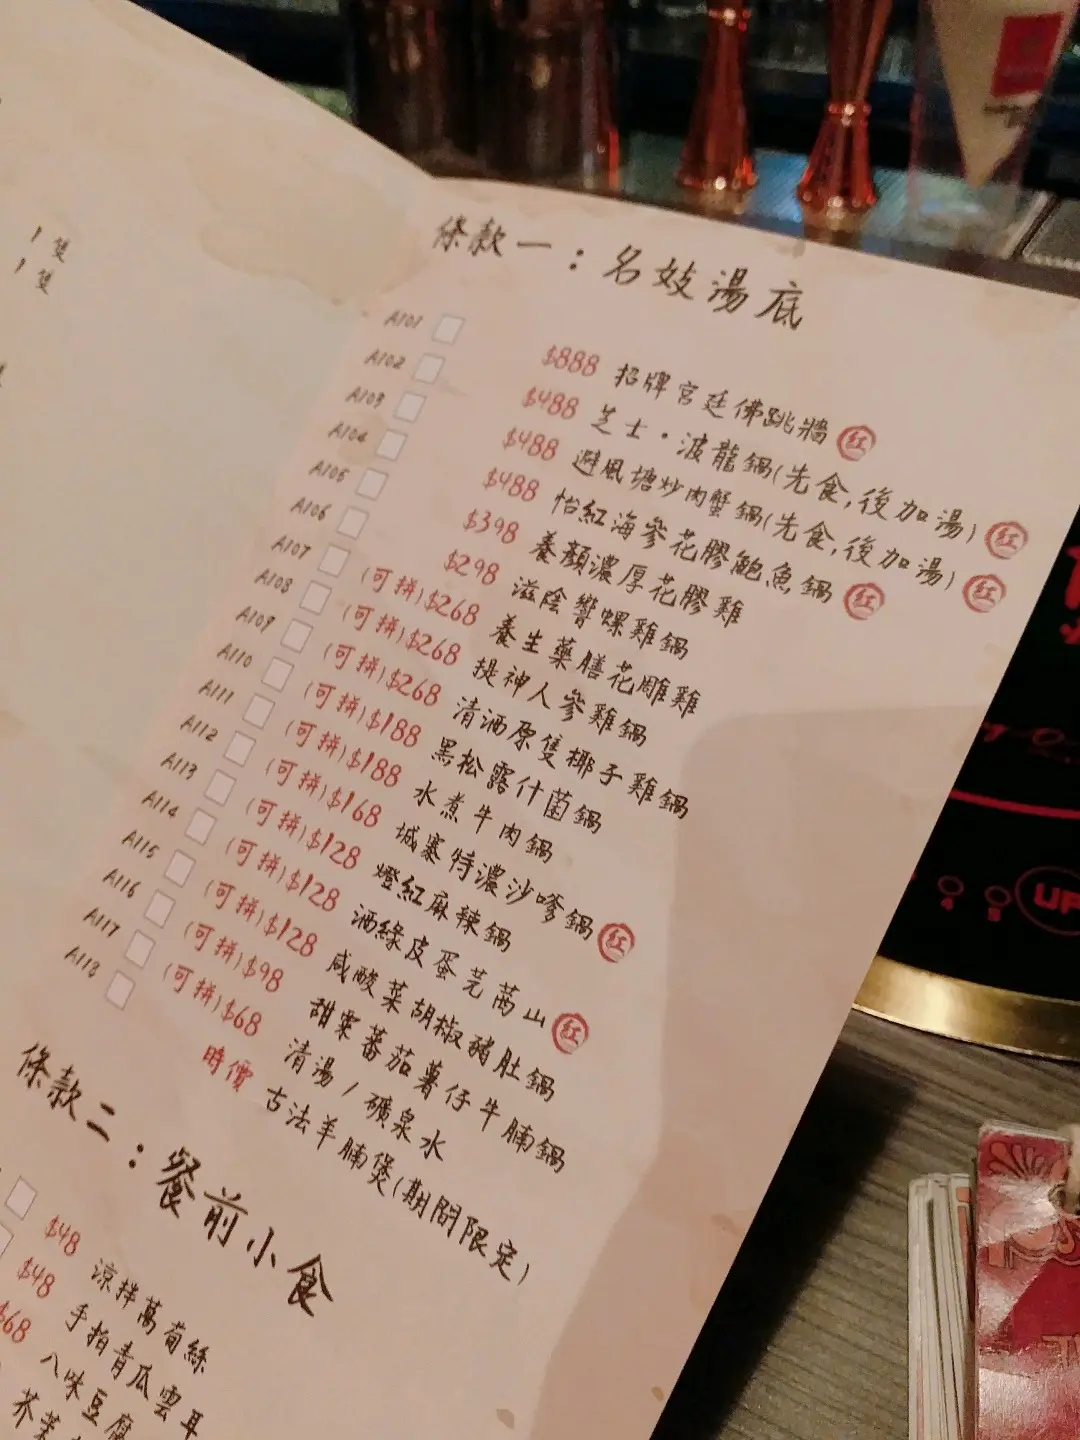 1隻
1隻
條款一：名妓湯底
A101 $888 招牌宮廷佛跳牆 紅
A102 $488 芝士·波龍鍋(先食,後加湯) 紅
A103 $488 避風塘炒肉蟹鍋(先食,後加湯) 紅
A104 $488 怡紅海參花膠鮑魚鍋 紅
A105 $398 養顏濃厚花膠雞
A106 $298 滋陰響螺雞鍋
A107 (可拼)$268 養生藥膳花雕雞
A108 (可拼)$268 提神人參雞鍋
A109 (可拼)$268 清酒原隻椰子雞鍋
A110 (可拼)$188 黑松露什菌鍋
A111 (可拼)$188 水煮牛肉鍋
A112 (可拼)$168 城寨特濃沙嗲鍋 紅
A113 (可拼)$128 燈紅麻辣鍋
A114 (可拼)$128 酒綠皮蛋芫茜山 紅
A115 (可拼)$128 咸酸菜胡椒豬肚鍋
A116 (可拼)$98 甜寨蕃茄薯仔牛腩鍋
A117 (可拼)$68 清湯/礦泉水
A118 時價 古法羊腩煲(期間限定)
條款二：餐前小食
$48 涼拌萵荀絲
$48 手拍青瓜雲耳
$68 八味豆腐
UP